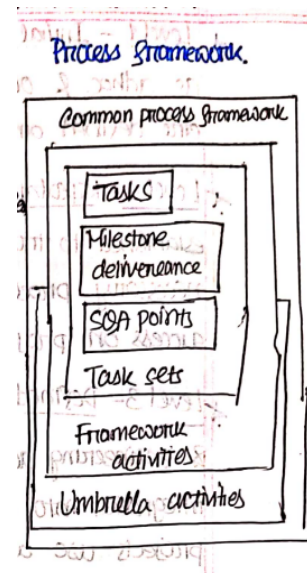 Process Framework.
Common process framework
Tasks
Milestone
deliverneance
SQA points
Task sets
Framework
activities
Umbrella activities